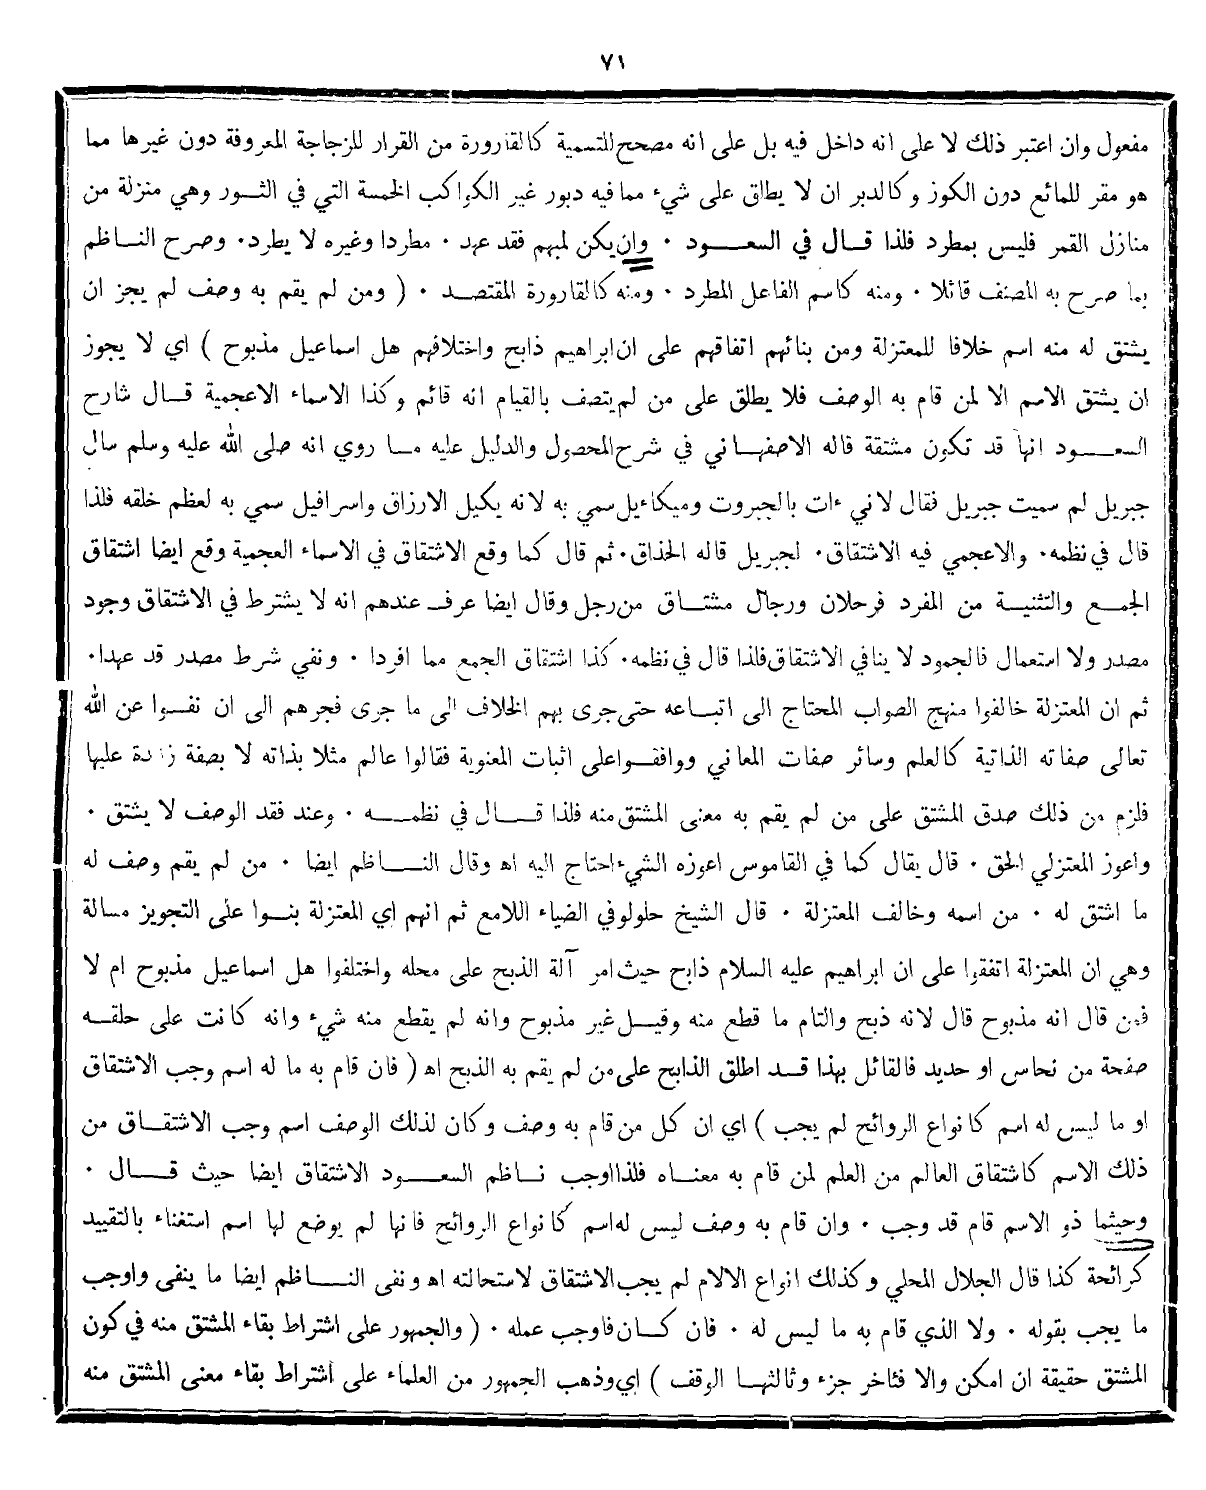 ٧١
مفعول وان اعتبر ذلك لا على انه داخل فيه بل على انه مصحح للتسمية كالقارورة من القرار للزجاجة المعروفة دون غيرها مما
هو مقر للمائع دون الكوز وكالدبران لا يطلق على شيء مما فيه دبور غير الكواكب الخمسة التي في الثور وهي منزلة من
منازل القمر فليس بمطرد فلذا قال في السعود ٠ وان يكن لمبهم فقد عهد ٠ مطردا وغيره لا يطرد ٠ وصرح الناظم
بما صرح به المصنف قائلا ٠ ومنه كاسم الفاعل المطرد ٠ ومنه كالقارورة المقتصد ٠ ( ومن لم يقم به وصف لم يجز ان
يشتق له منه اسم خلافا للمعتزلة ومن بنائهم اتفاقهم على ان ابراهيم ذابح واختلافهم هل اسماعيل مذبوح ) اي لا يجوز
ان يشتق الاسم الا لمن قام به الوصف فلا يطلق على من لم يتصف بالقيام انه قائم وكذا الاسماء الاعجمية قال شارح
السعود انها قد تكون مشتقة قاله الاصفهاني في شرح المحصول والدليل عليه ما روي انه صلى الله عليه وسلم سال
جبريل لم سميت جبريل فقال لاني ءات بالجبروت وميكاءيل سمي به لانه يكيل الارزاق واسرافيل سمي به لعظم خلقه فلذا
قال في نظمه ٠ والاعجمي فيه الاشتقاق ٠ لجبريل قاله الحذاق ٠ ثم قال كما وقع الاشتقاق في الاسماء العجمية وقع ايضا اشتقاق
الجمع والتثنية من المفرد فرجلان ورجال مشتاق من رجل وقال ايضا عرف عندهم انه لا يشترط في الاشتقاق وجود
مصدر ولا استعمال فالجمود لا ينافي الاشتقاق فلذا قال في نظمه ٠ كذا اشتقاق الجمع مما افردا ٠ ونفي شرط مصدر قد عهدا ٠
ثم ان المعتزلة خالفوا منهج الصواب المحتاج الى اتباعه حتى جرى بهم الخلاف الى ما جرى فجرهم الى ان نفوا عن الله
تعالى صفاته الذاتية كالعلم وسائر صفات المعاني ووافقوا على اثبات المعنوية فقالوا عالم مثلا بذاته لا بصفة زائدة عليها
فلزم من ذلك صدق المشتق على من لم يقم به معنى المشتق منه فلذا قال في نظمه ٠ وعند فقد الوصف لا يشتق ٠
واعوز المعتزلي الحق ٠ قال يقال كما في القاموس اعوزه الشيء احتاج اليه اه وقال الناظم ايضا ٠ من لم يقم وصف له
ما اشتق له ٠ من اسمه وخالف المعتزلة ٠ قال الشيخ حلولو في الضياء اللامع ثم انهم اي المعتزلة بنوا على التجويز مسالة
وهي ان المعتزلة اتفقوا على ان ابراهيم عليه السلام ذابح حيث امر آلة الذبح على محله واختلفوا هل اسماعيل مذبوح ام لا
فمن قال انه مذبوح قال لانه ذبح والتام ما قطع منه وقيل غير مذبوح وانه لم يقطع منه شيء وانه كانت على حلقه
صفحة من نحاس او حديد فالقائل بهذا قد اطلق الذابح على من لم يقم به الذبح اه ( فان قام به ما له اسم وجب الاشتقاق
او ما ليس له اسم كانواع الروائح لم يجب ) اي ان كل من قام به وصف وكان لذلك الوصف اسم وجب الاشتقاق من
ذلك الاسم كاشتقاق العالم من العلم لمن قام به معناه فلذا اوجب ناظم السعود الاشتقاق ايضا حيث قال ٠
وحيثما ذو الاسم قام قد وجب ٠ وان قام به وصف ليس له اسم كانواع الروائح فانها لم يوضع لها اسم استغناء بالتقييد
كرائحة كذا قال الجلال المحلي وكذلك انواع الالام لم يجب الاشتقاق لاستحالته اه ونفى الناظم ايضا ما ينفى واوجب
ما يجب بقوله ٠ ولا الذي قام به ما ليس له ٠ فان كان فاوجب عمله ٠ ( والجمهور على اشتراط بقاء المشتق منه في كون
المشتق حقيقة ان امكن والا فئاخر جزء وثالثها الوقف ) اي وذهب الجمهور من العلماء على اشتراط بقاء معنى المشتق منه